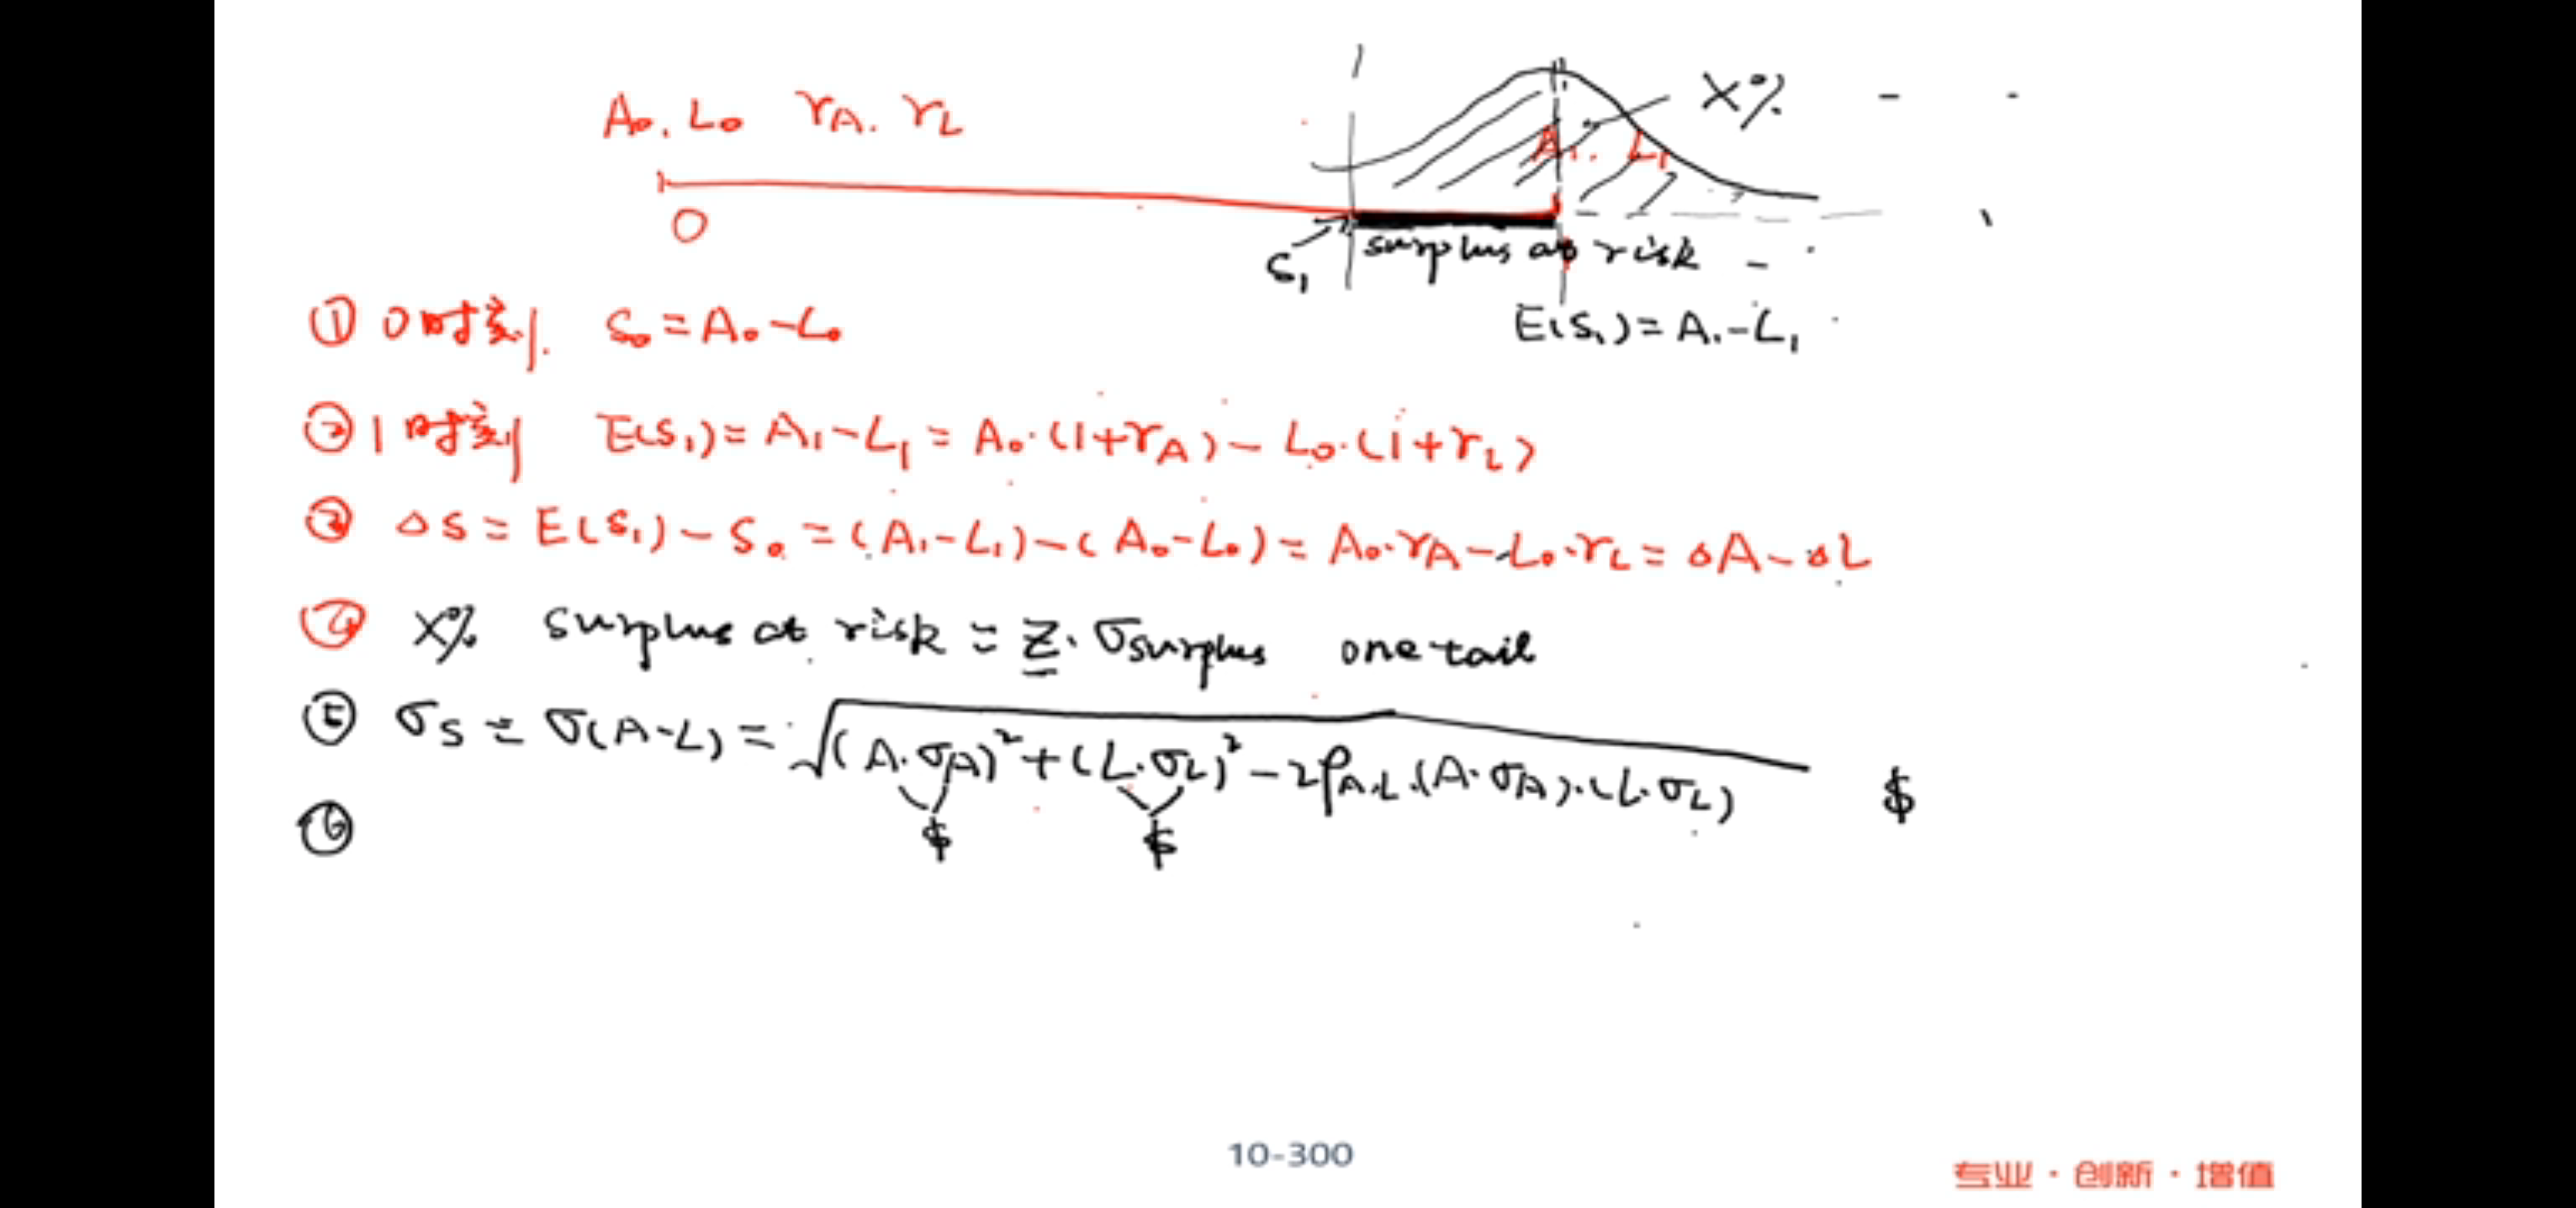 A₀. L₀ r_A. r_L
X%
A₁. L₁
0
S₁
surplus at risk
E(S₁) = A₁ - L₁
① 0时刻. S₀ = A₀ - L₀
② 1时刻 E(S₁) = A₁ - L₁ = A₀·(1+r_A) - L₀·(1+r_L)
③ △S = E(S₁) - S₀ = (A₁-L₁) - (A₀-L₀) = A₀·r_A - L₀·r_L = △A - △L
④ X% surplus at risk = Z·σsurplus one tail
⑤ σ_S = σ(A-L) = √((A·σ_A)² + (L·σ_L)² - 2ρ_A.L·(A·σ_A)·(L·σ_L)) $
$ $
⑥
10-300
专业·创新·增值